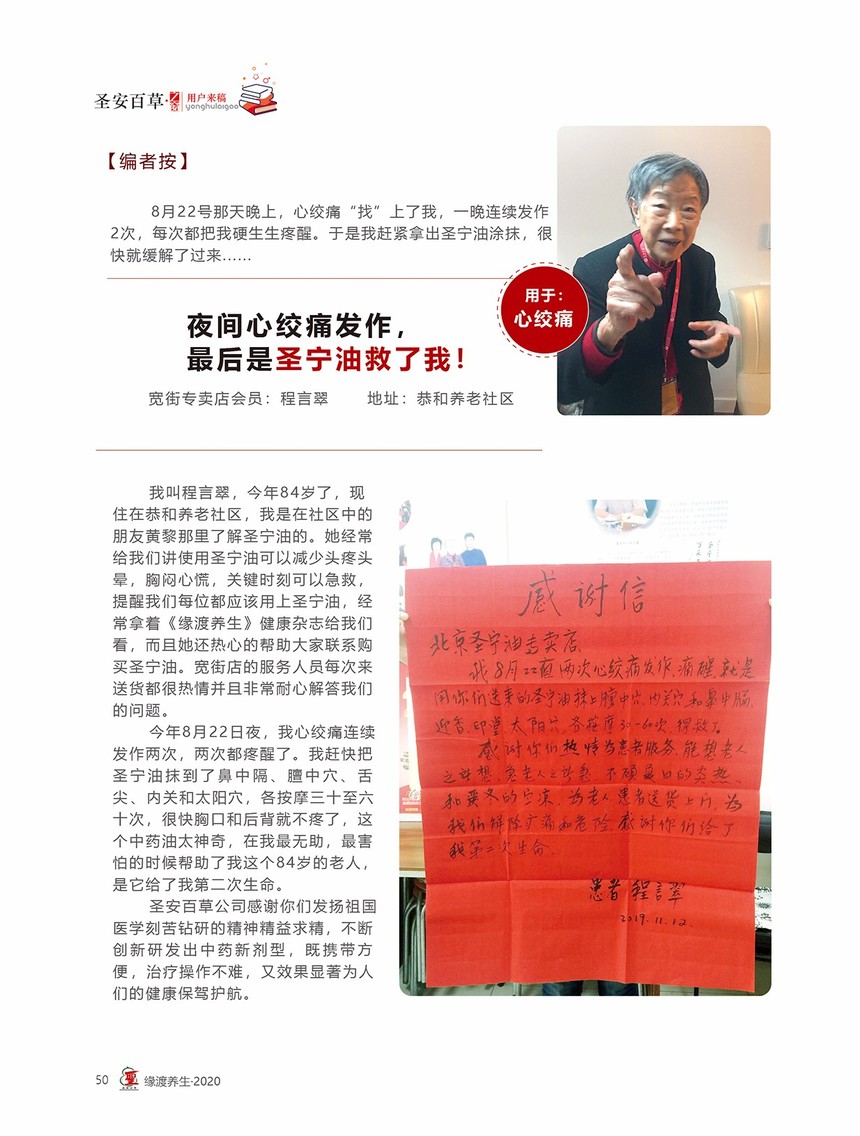 圣安百草·之窗
用户来稿
yonghulaigao
【编者按】
8月22号那天晚上，心绞痛“找”上了我，一晚连续发作
2次，每次都把我硬生生疼醒。于是我赶紧拿出圣宁油涂抹，很
快就缓解了过来……
用于：
心绞痛
夜间心绞痛发作，
最后是圣宁油救了我！
宽街专卖店会员：程言翠 地址：恭和养老社区
我叫程言翠，今年84岁了，现
住在恭和养老社区，我是在社区中的
朋友黄黎那里了解圣宁油的。她经常
给我们讲使用圣宁油可以减少头疼头
晕，胸闷心慌，关键时刻可以急救，
提醒我们每位都应该用上圣宁油，经
常拿着《缘渡养生》健康杂志给我们
看，而且她还热心的帮助大家联系购
买圣宁油。宽街店的服务人员每次来
送货都很热情并且非常耐心解答我们
的问题。
今年8月22日夜，我心绞痛连续
发作两次，两次都疼醒了。我赶快把
圣宁油抹到了鼻中隔、膻中穴、舌
尖、内关和太阳穴，各按摩三十至六
十次，很快胸口和后背就不疼了，这
个中药油太神奇，在我最无助，最害
怕的时候帮助了我这个84岁的老人，
是它给了我第二次生命。
圣安百草公司感谢你们发扬祖国
医学刻苦钻研的精神精益求精，不断
创新研发出中药新剂型，既携带方
便，治疗操作不难，又效果显著为人
们的健康保驾护航。
感谢信
北京圣宁油专卖店
我8月22夜两次心绞痛发作、痛醒、就是
用你们送来的圣宁油抹上膻中穴、内关穴和鼻中隔、
迎香、印堂、太阳穴、各按摩30-60次、得救了。
感谢你们热情为患者服务、能想老人
之所想、急老人之所急、不顾夏日的炎热、
和寒冬的空凉、为老人患者送货上门、为
我们解除疼痛和危险、感谢你们给了
我第二次生命、
患者 程言翠
2019.11.12.
50 缘渡养生·2020